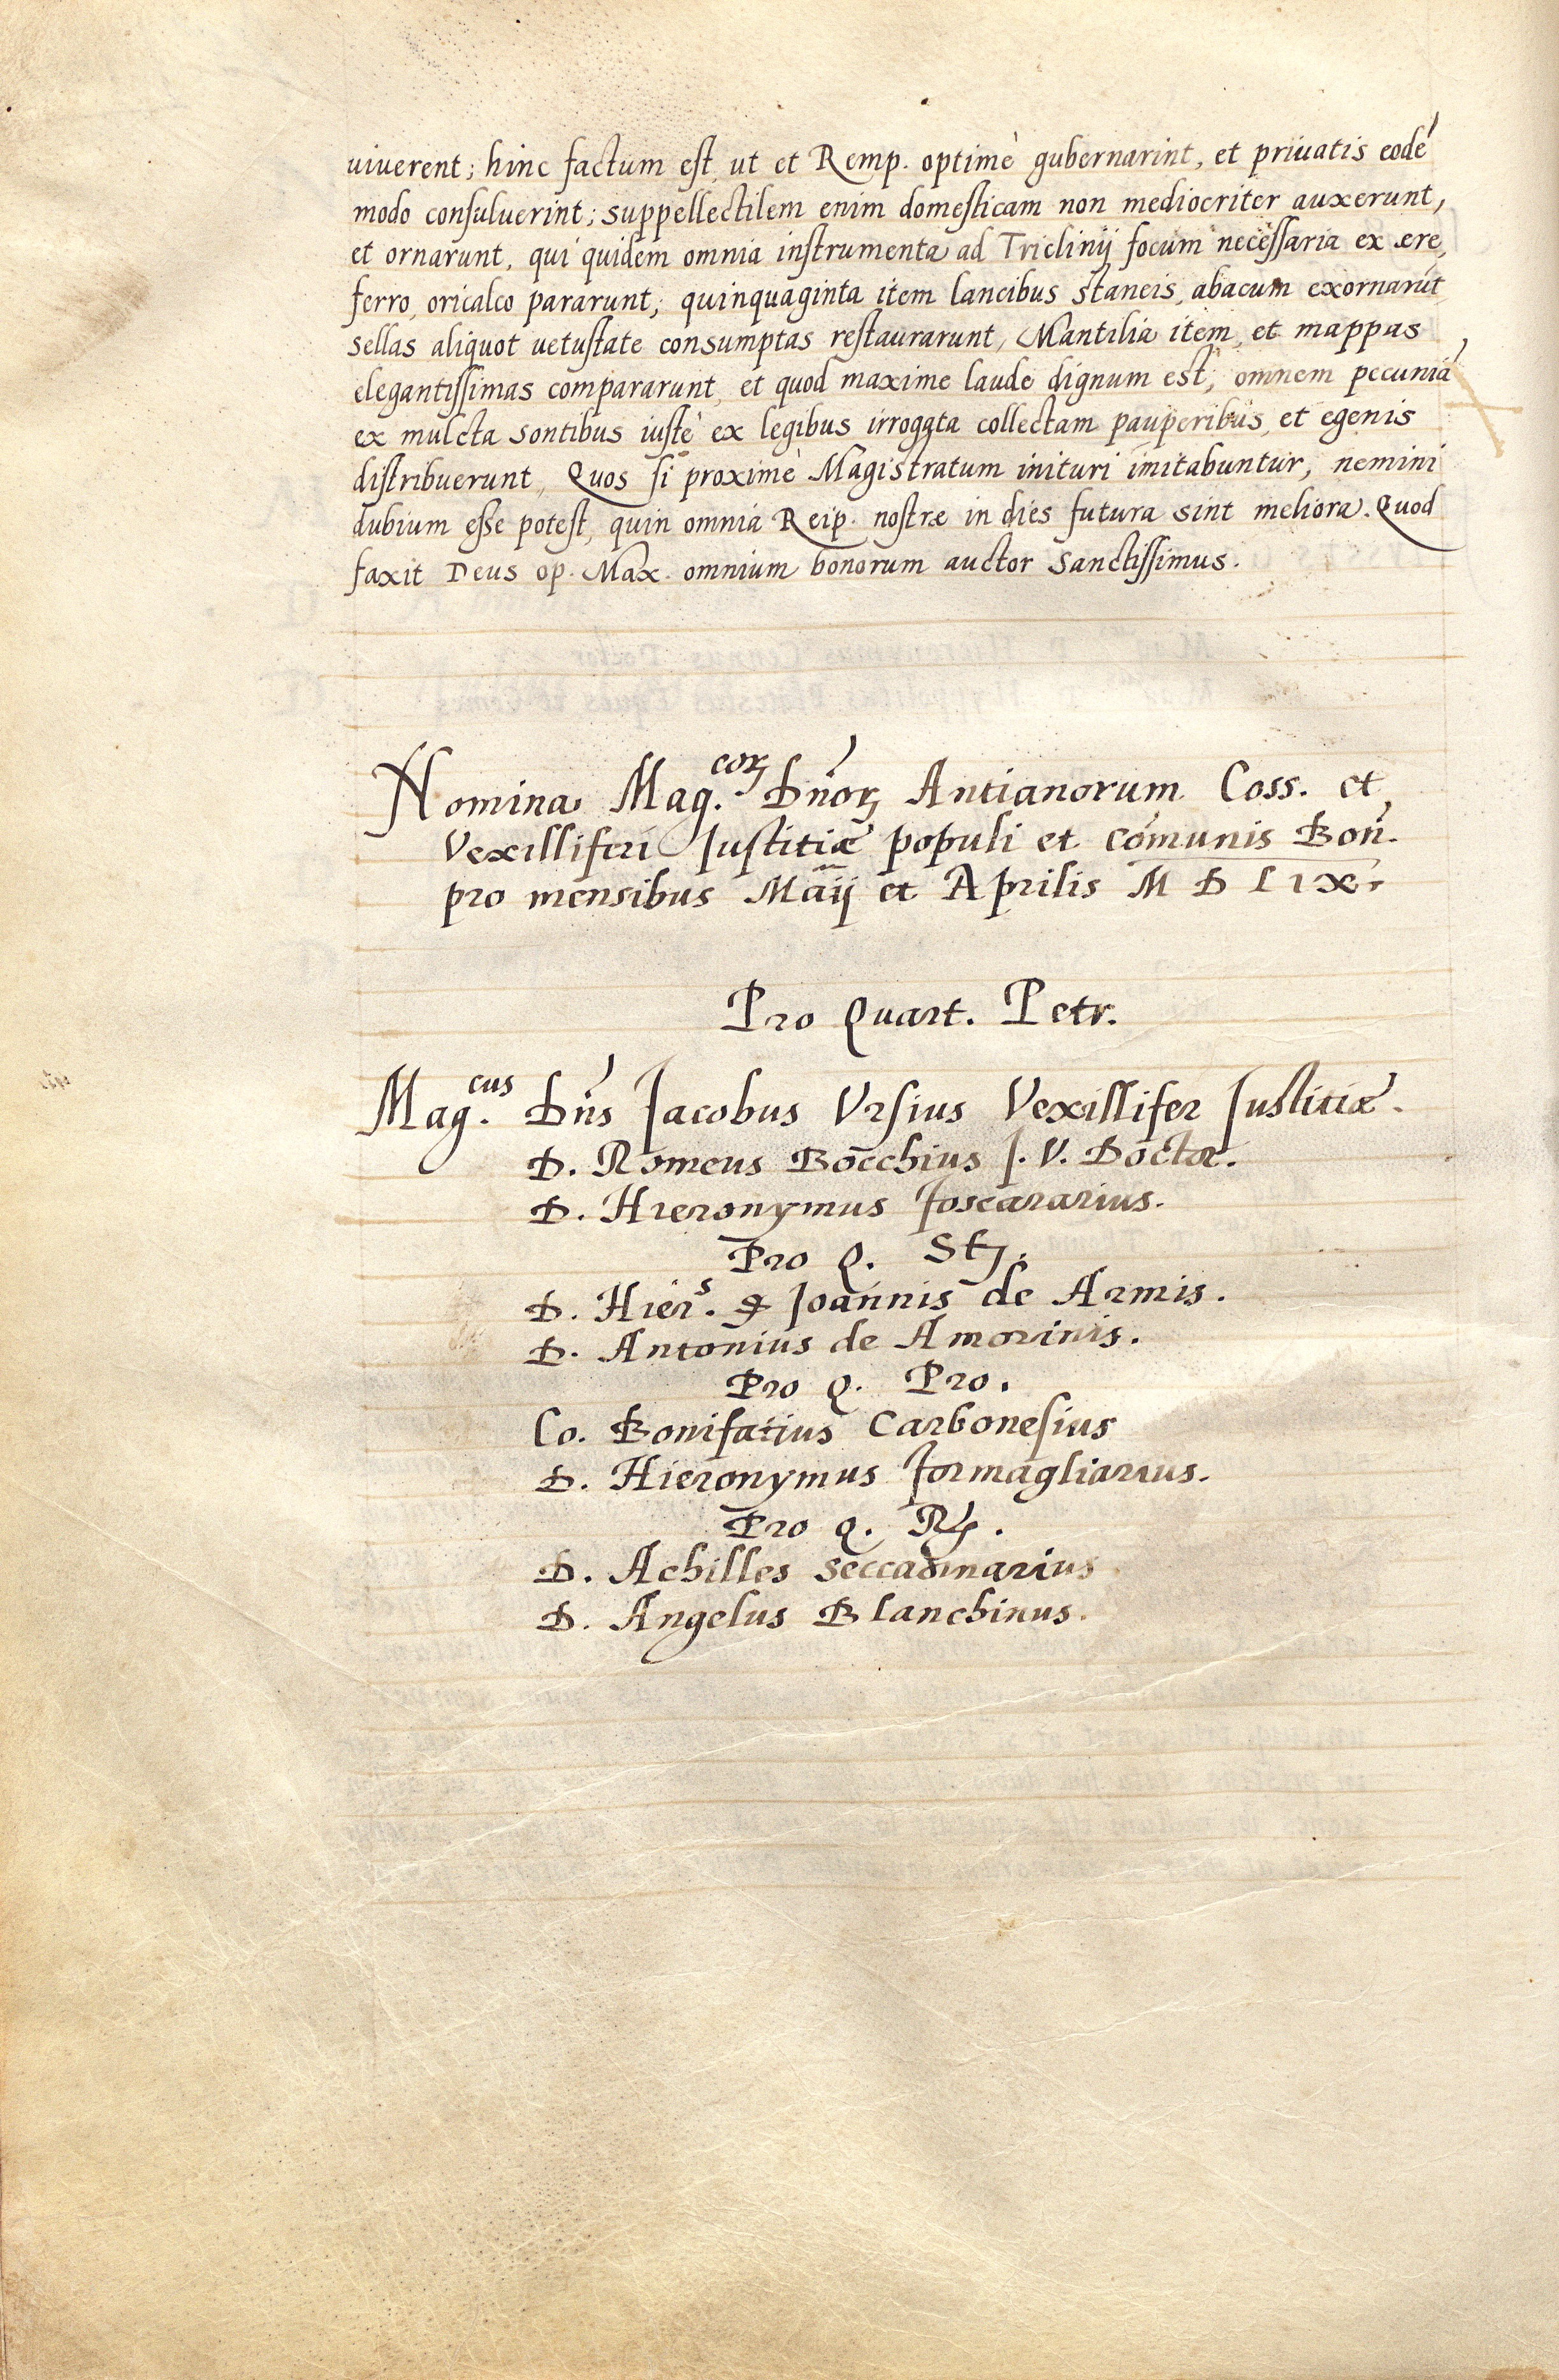 uiuerent; hinc factum est, ut et Remp. optimè gubernarint, et priuatis eodē
modo consuluerint; suppellectilem enim domesticam non mediocriter auxerunt,
et ornarunt, qui quidem omnia instrumenta ad Triclinij focum necessaria ex ære,
ferro, oricalco pararunt; quinquaginta item lancibus staneis, abacum exornarūt
sellas aliquot uetustate consumptas restaurarunt, Mantilia item, et mappas
elegantissimas compararunt, et quod maxime laude dignum est, omnem pecuniā
ex mulcta sontibus iustè ex legibus irrogata collectam pauperibus, et egenis
distribuerunt, Quos si proximè Magistratum inituri imitabuntur, nemini
dubium esse potest, quin omnia Reip. nostræ in dies futura sint meliora. Quod
faxit Deus op. Max. omnium bonorum auctor Sanctissimus.
Nomina Mag.corꝝ Dn̄orꝝ Antianorum Coss. et
Vexilliferi Justitiæ populi et cōmunis Bon̄.
pro mensibus Maij et Aprilis M D LIX.
Pro Quart. Petr.
Mag.cus Dn̄s Jacobus Vrsius Vexillifer Justitiæ.
D. Romeus Bocchius J. V. Doctor.
D. Hieronymus foscararius.
Pro Q. St;.
D. Hier.s q̄ Joannis de Armis.
D. Antonius de Amorinis.
Pro Q. Pro.
Co. Bonifatius Carbonesius
D. Hieronymus formagliarius.
Pro Q. R;.
D. Achilles seccadinarius
D. Angelus Blanchinus.